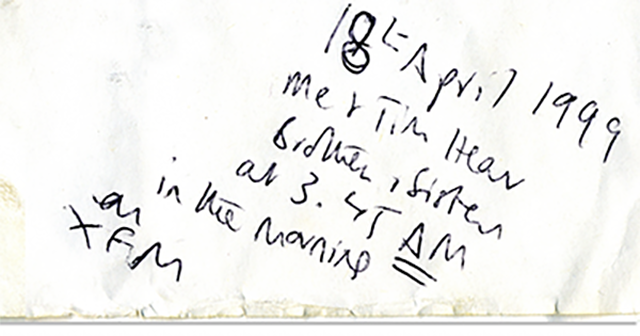 18th April 1999
me & Tim Hear
Brother, Sister
at 3.45 AM
in the morning
on
XFM